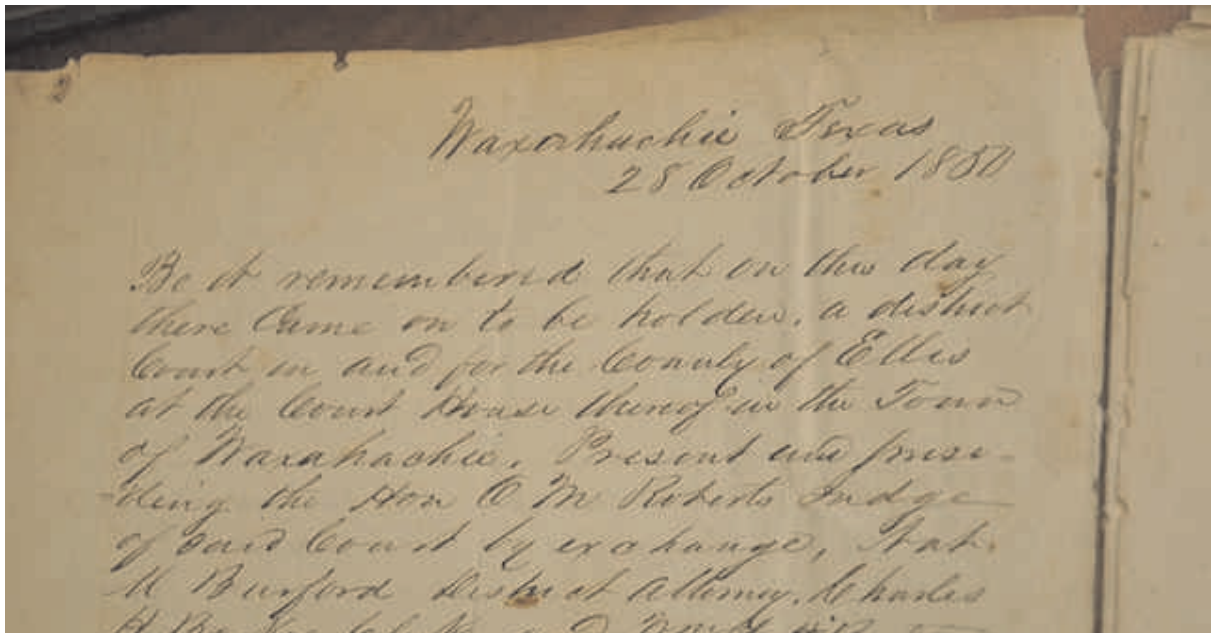 Waxahachie Texas
28 October 1850
Be it remembered that on this day
there Came on to be holden, a district
Court in and for the County of Ellis
at the Court House thereof in the Town
of Waxahachie. Present and presi-
ding the Hon O M Roberts Judge
of said Court by exchange, Nat.
M Burford District Attorney, Charles
H